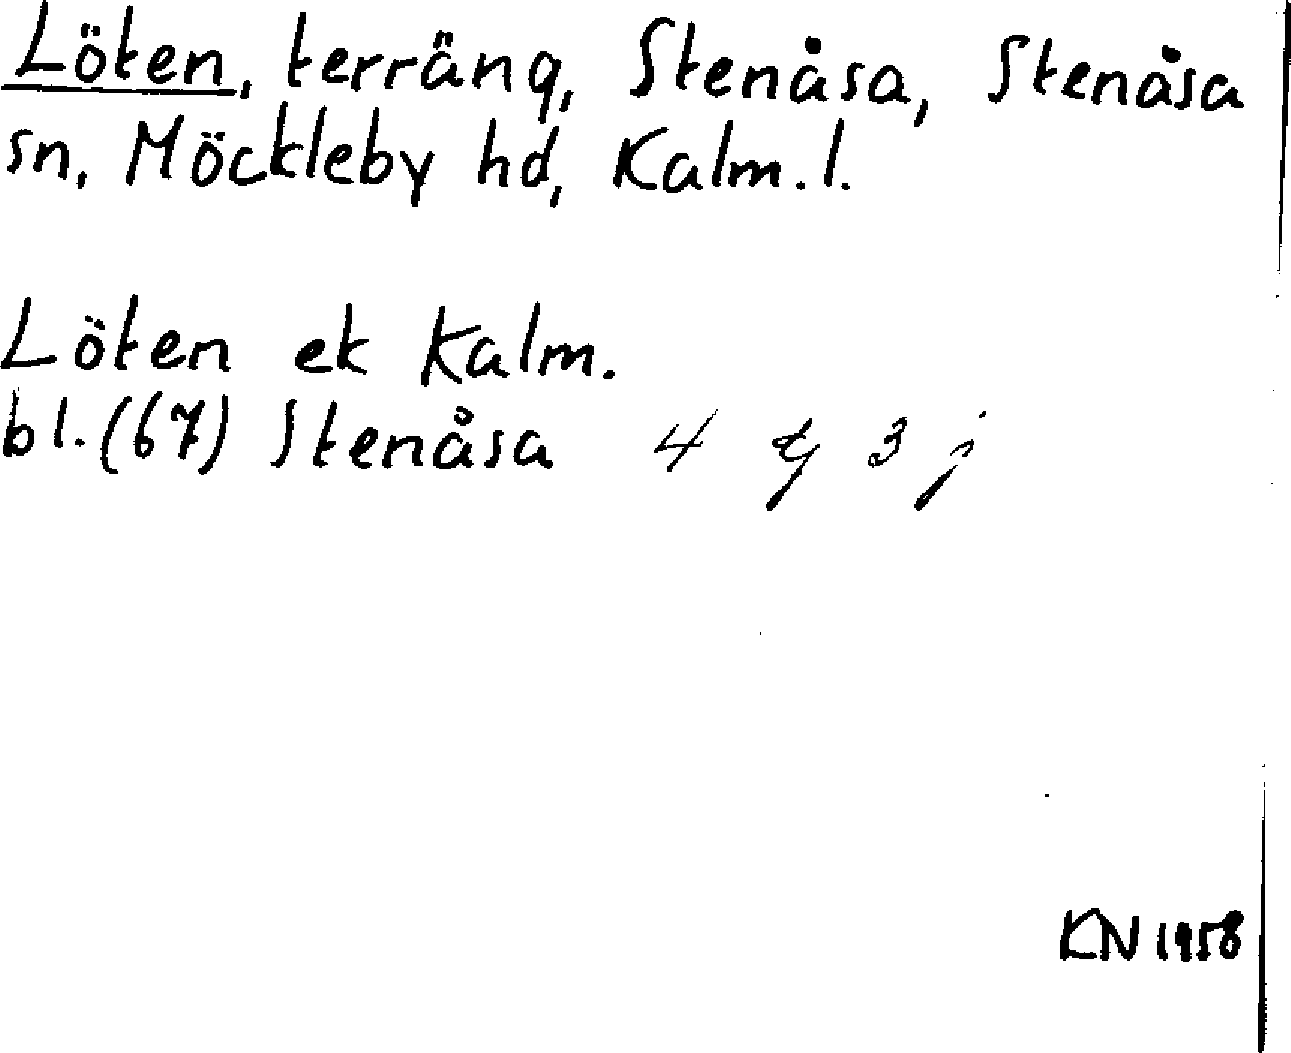 Löten, terräng, Stenåsa, Stenåsa
sn, Möckleby hd, Kalm. l.
Löten ek Kalm.
bl. (67) Stenåsa 4 g 3 j
KN 1958